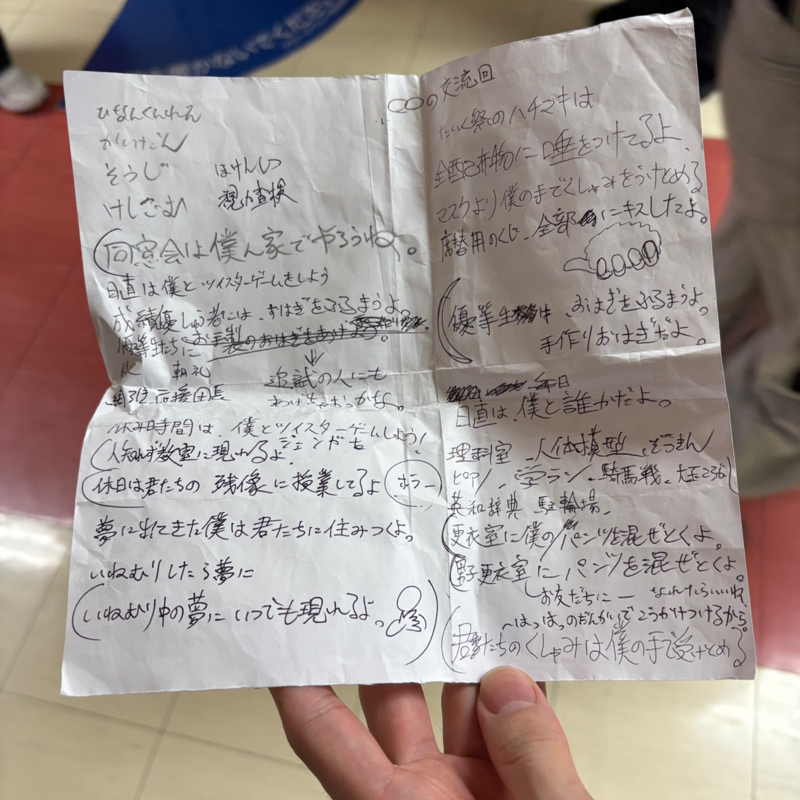 ひなんくんれん
そうじ
けしごむ
ほけんしつ
視力検
同窓会は僕ん家でやろうね。
日直は僕とツイスターゲームをしよう
成績優しゅう者には、おはぎをふるまうよ。
優等生たちに お手製のおはぎをあげ
朝礼
追試の人にも
わけちゃおっかな。
応援団長
休み時間は、僕とツイスターゲームしよう!
ジェンガも
人知れず教室に現れるよ
休日は君たちの 残像に授業してるよ
ホラー
夢に出てきた僕は君たちに住みつくよ。
いねむりしたら夢に
いねむり中の夢にいつでも現れるよ。
○○の交流回
たいく祭のハチマキは
全配布物に唾をつけてるよ、
マスクより僕の手でくしゃみをうけとめる
席替用のくじ、全部にキスしたよ。
優等生には おはぎをふるまうよ。
手作りおはぎだよ。
毎日
日直は、僕と誰かだよ。
理科室 人体模型、ぞうきん
ピアノ 学ラン、騎馬戦、大玉ころがし
英和辞典 駐輪場、
更衣室に僕のパンツを混ぜとくよ。
男子更衣室にパンツを混ぜとくよ。
お友だちに なれたらいいね
へはっはっのだんかいで かけつけるから。
君たちのくしゃみは僕の手で受けとめる